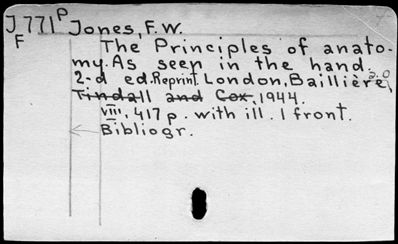 J 771 P Jones, F. W.
F
The Principles of anato-
my. As seen in the hand.
2-d ed. Reprint London, Baillière,
Tindall and Cox, 1944.
VIII, 417 p. with ill. 1 front.
Bibliogr.